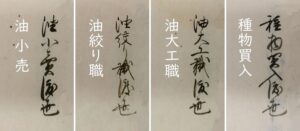 種物買入
種物買入
油大工職渡世
油大工職
油絞職渡世
油絞り職
油小賣渡世
油小売